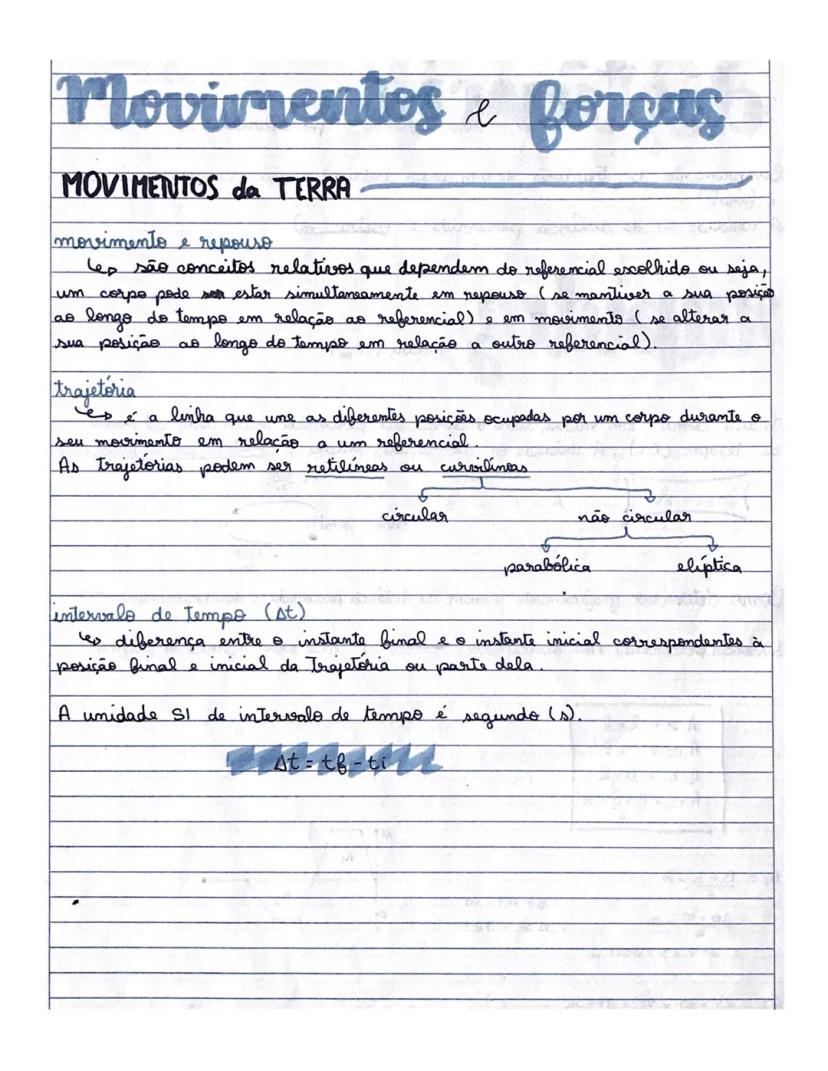 Movimentos e forças
MOVIMENTOS da TERRA
movimento e repouso
são conceitos relativos que dependem do referencial escolhido ou seja,
um corpo pode estar simultaneamente em repouso (se mantiver a sua posição
ao longo do tempo em relação ao referencial) e em movimento (se alterar a
sua posição ao longo do tempo em relação a outro referencial).
trajetória
é a linha que une as diferentes posições ocupadas por um corpo durante o
seu movimento em relação a um referencial.
As trajetórias podem ser retilíneas ou curvilíneas
circular não circular
parabólica elíptica
intervalo de tempo (Δt)
diferença entre o instante final e o instante inicial correspondentes à
posição final e inicial da Trajetória ou parte dela.
A unidade SI de intervalo de tempo é segundo (s).
Δt = tf - ti